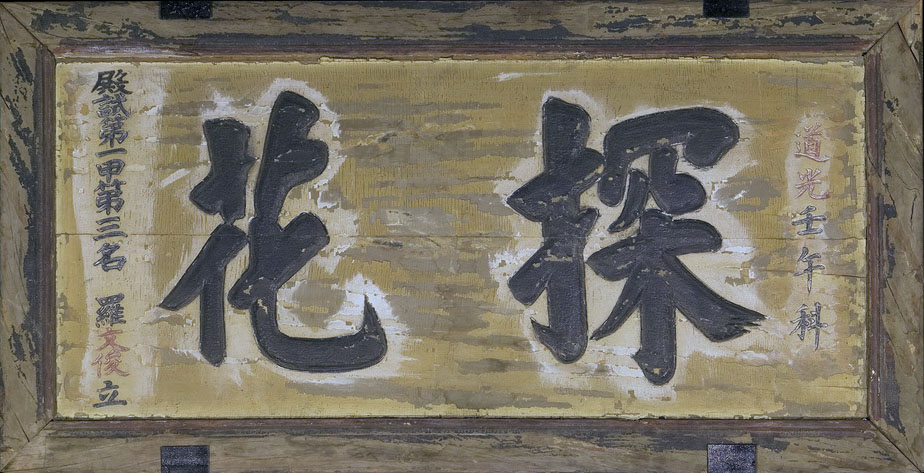 道光壬午科
探花
殿試第一甲第三名 羅文俊立